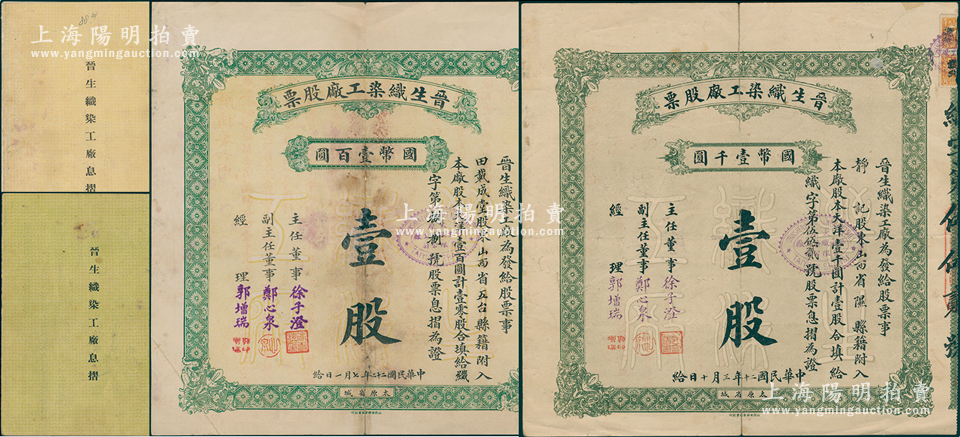 晉生織染工廠息摺
晉生織染工廠息摺
上海陽明拍賣
www.yangmingauction.com
晉生織染工廠股票
國幣壹百圓
晉生織染工廠為發給股票事
田戴成壹股東山西省五台縣籍附入
本廠股本大洋壹百圓計壹零股合填給織
號股票息摺為證
壹股
主任董事徐子澄
副主任董事鄭心泉
經理郭增瑞
中華民國二十二年七月一日給
太原省城
上海陽明拍賣
www.yangmingauction.com
晉生織染工廠股票
國幣壹千圓
晉生織染工廠為發給股票事
靜記股東山西省隰縣籍附入
本廠股本大洋壹千圓計壹股合填給
織字第伍佰貳號股票息摺為證
壹股
主任董事徐子澄
副主任董事鄭心泉
經理郭增瑞
中華民國二十二年三月十日給
太原省城